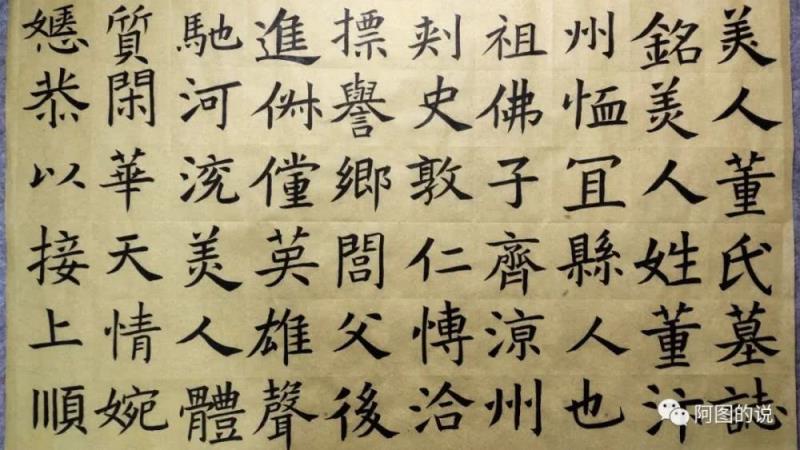 美人董氏墓誌
銘美人姓董汴
州恤冝縣人也
祖佛子齊涼州
刾史敦仁愽洽
摽譽鄉閭父後
進俶儻英雄聲
馳河沇美人體
質閑華天情婉
嫕恭以接上順
阿图的说